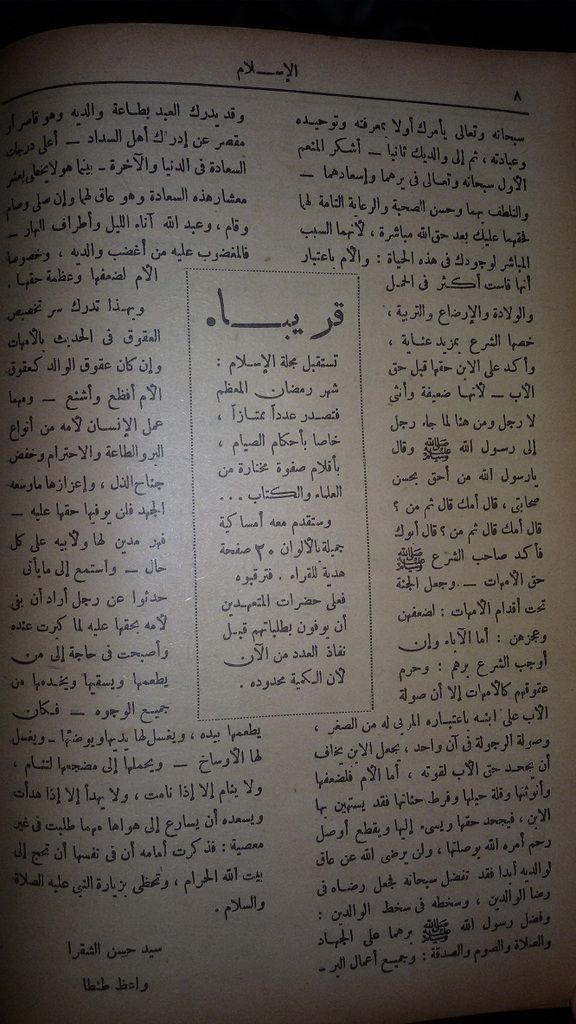 الإسلام
٨
سبحانه وتعالى يأمرك أولا بمعرفته وتوحيده
وعبادته ، ثم إلى والديك ثانياً — أشكر المنعم
الأول سبحانه وتعالى فى برهما وإسعادهما —
والتلطف بهما وحسن الصحبة والرعاية التامة لهما
لحقهما عليك بعد حق الله مباشرة ، لأنهما السبب
المباشر لوجودك فى هذه الحياة : والأم باعتبار
أنها قاست أكثر فى الحمل
والولادة والإرضاع والتربية ،
خصها الشرع بمزيد عناية ،
وأكد على الابن حقها قبل حق
الأب — لأنها ضعيفة وأنثى
لا رجل ومن هنا لما جاء رجل
إلى رسول الله ﷺ وقال
يارسول الله من أحق بحسن
صحابتى ، قال أمك قال ثم من ؟
قال أمك قال ثم من ؟ قال أبوك
فأكد صاحب الشرع ﷺ
حق الأمهات — وجعل الجنة
تحت أقدام الأمهات : لضعفهن
وعجزهن : أما الآباء وإن
أوجب الشرع برهم : وحرم
عقوقهم كالأمهات إلا أن صولة
الأب على ابنه باعتباره المربى له من الصغر ،
وصولة الرجولة فى آن واحد ، يجعل الابن يخاف
أن يجحد حق الأب لقوته ، أما الأم فلضعفها
وأنوثتها وقلة حيلها وفرط حنانها فقد يستهين بها
الابن ، فيجحد حقها ويسىء إليها ويقطع أوصل
رحم أمره الله بوصلتها ، ولن يرضى الله عن عاق
لوالديه أبدا فقد تفضل سبحانه بجعل رضاه فى
رضا الوالدين ، وسخطه فى سخط الوالدين :
وفضل رسول الله ﷺ برهما على الجهاد
والصلاة والصوم والصدقة : وجميع أعمال البر —
وقد يدرك العبد بطاعة والديه وهو قاصر أو
مقصر عن إدراك أهل السداد — أعلى درجات
السعادة فى الدنيا والآخرة — بينما هو لا يحظى بعشر
معشار هذه السعادة وهو عاق لهما وإن صلى وصام
وقام ، وعبد الله آناء الليل وأطراف النهار —
فالمغضوب عليه من أغضب والديه ، وخصوصا
الأم لضعفها وعظمة حقها .
وبهذا تدرك سر تخصيص
العقوق فى الحديث بالأمهات
وإن كان عقوق الوالد كعقوق
الأم أفظع وأشنع — ومهما
عمل الإنسان لأمه من أنواع
البر والطاعة والاحترام وخفض
جناح الذل ، وإعزازها ما وسعه
الجهد فلن يوفيها حقها عليه —
فهو مدين لها ولأبيه على كل
حال — واستمع إلى ما يأتى
حدثوا عن رجل أراد أن يفى
لأمه بحقها عليه لما كبرت عنده
وأصبحت فى حاجة إلى من
يطعمها ويسقيها ويخدمها من
جميع الوجوه — فكان
يطعمها بيده ، ويغسل لها يديها ويوضئها — ويغسل
لها الأوساخ — ويحملها إلى مضجعها لتنام ،
ولا ينام إلا إذا نامت ، ولا يهدأ إلا إذا هدأت
ويسعده أن يسارع إلى هواها مهما طلبت فى غير
معصية : فذكرت أمامه أن فى نفسها أن تحج إلى
بيت الله الحرام ، وتحظى بزيارة النبى عليه الصلاة
والسلام .
سيد حسن الشقرا
واعظ طنطا
قريبا.
تستقبل مجلة الإسلام :
شهر رمضان المعظم
فتصدر عدداً ممتازاً ،
خاصا بأحكام الصيام ،
بأقلام صفوة مختارة من
العلماء والكتاب ...
وستقدم معه أمساكية
جميلة بالألوان ٢٠ صفحة
هدية للقراء . فترقبوه
فعلى حضرات المتعهدين
أن يوفون بطلباتهم قبل
نفاذ العدد من الآن
لأن الكمية محدوده .